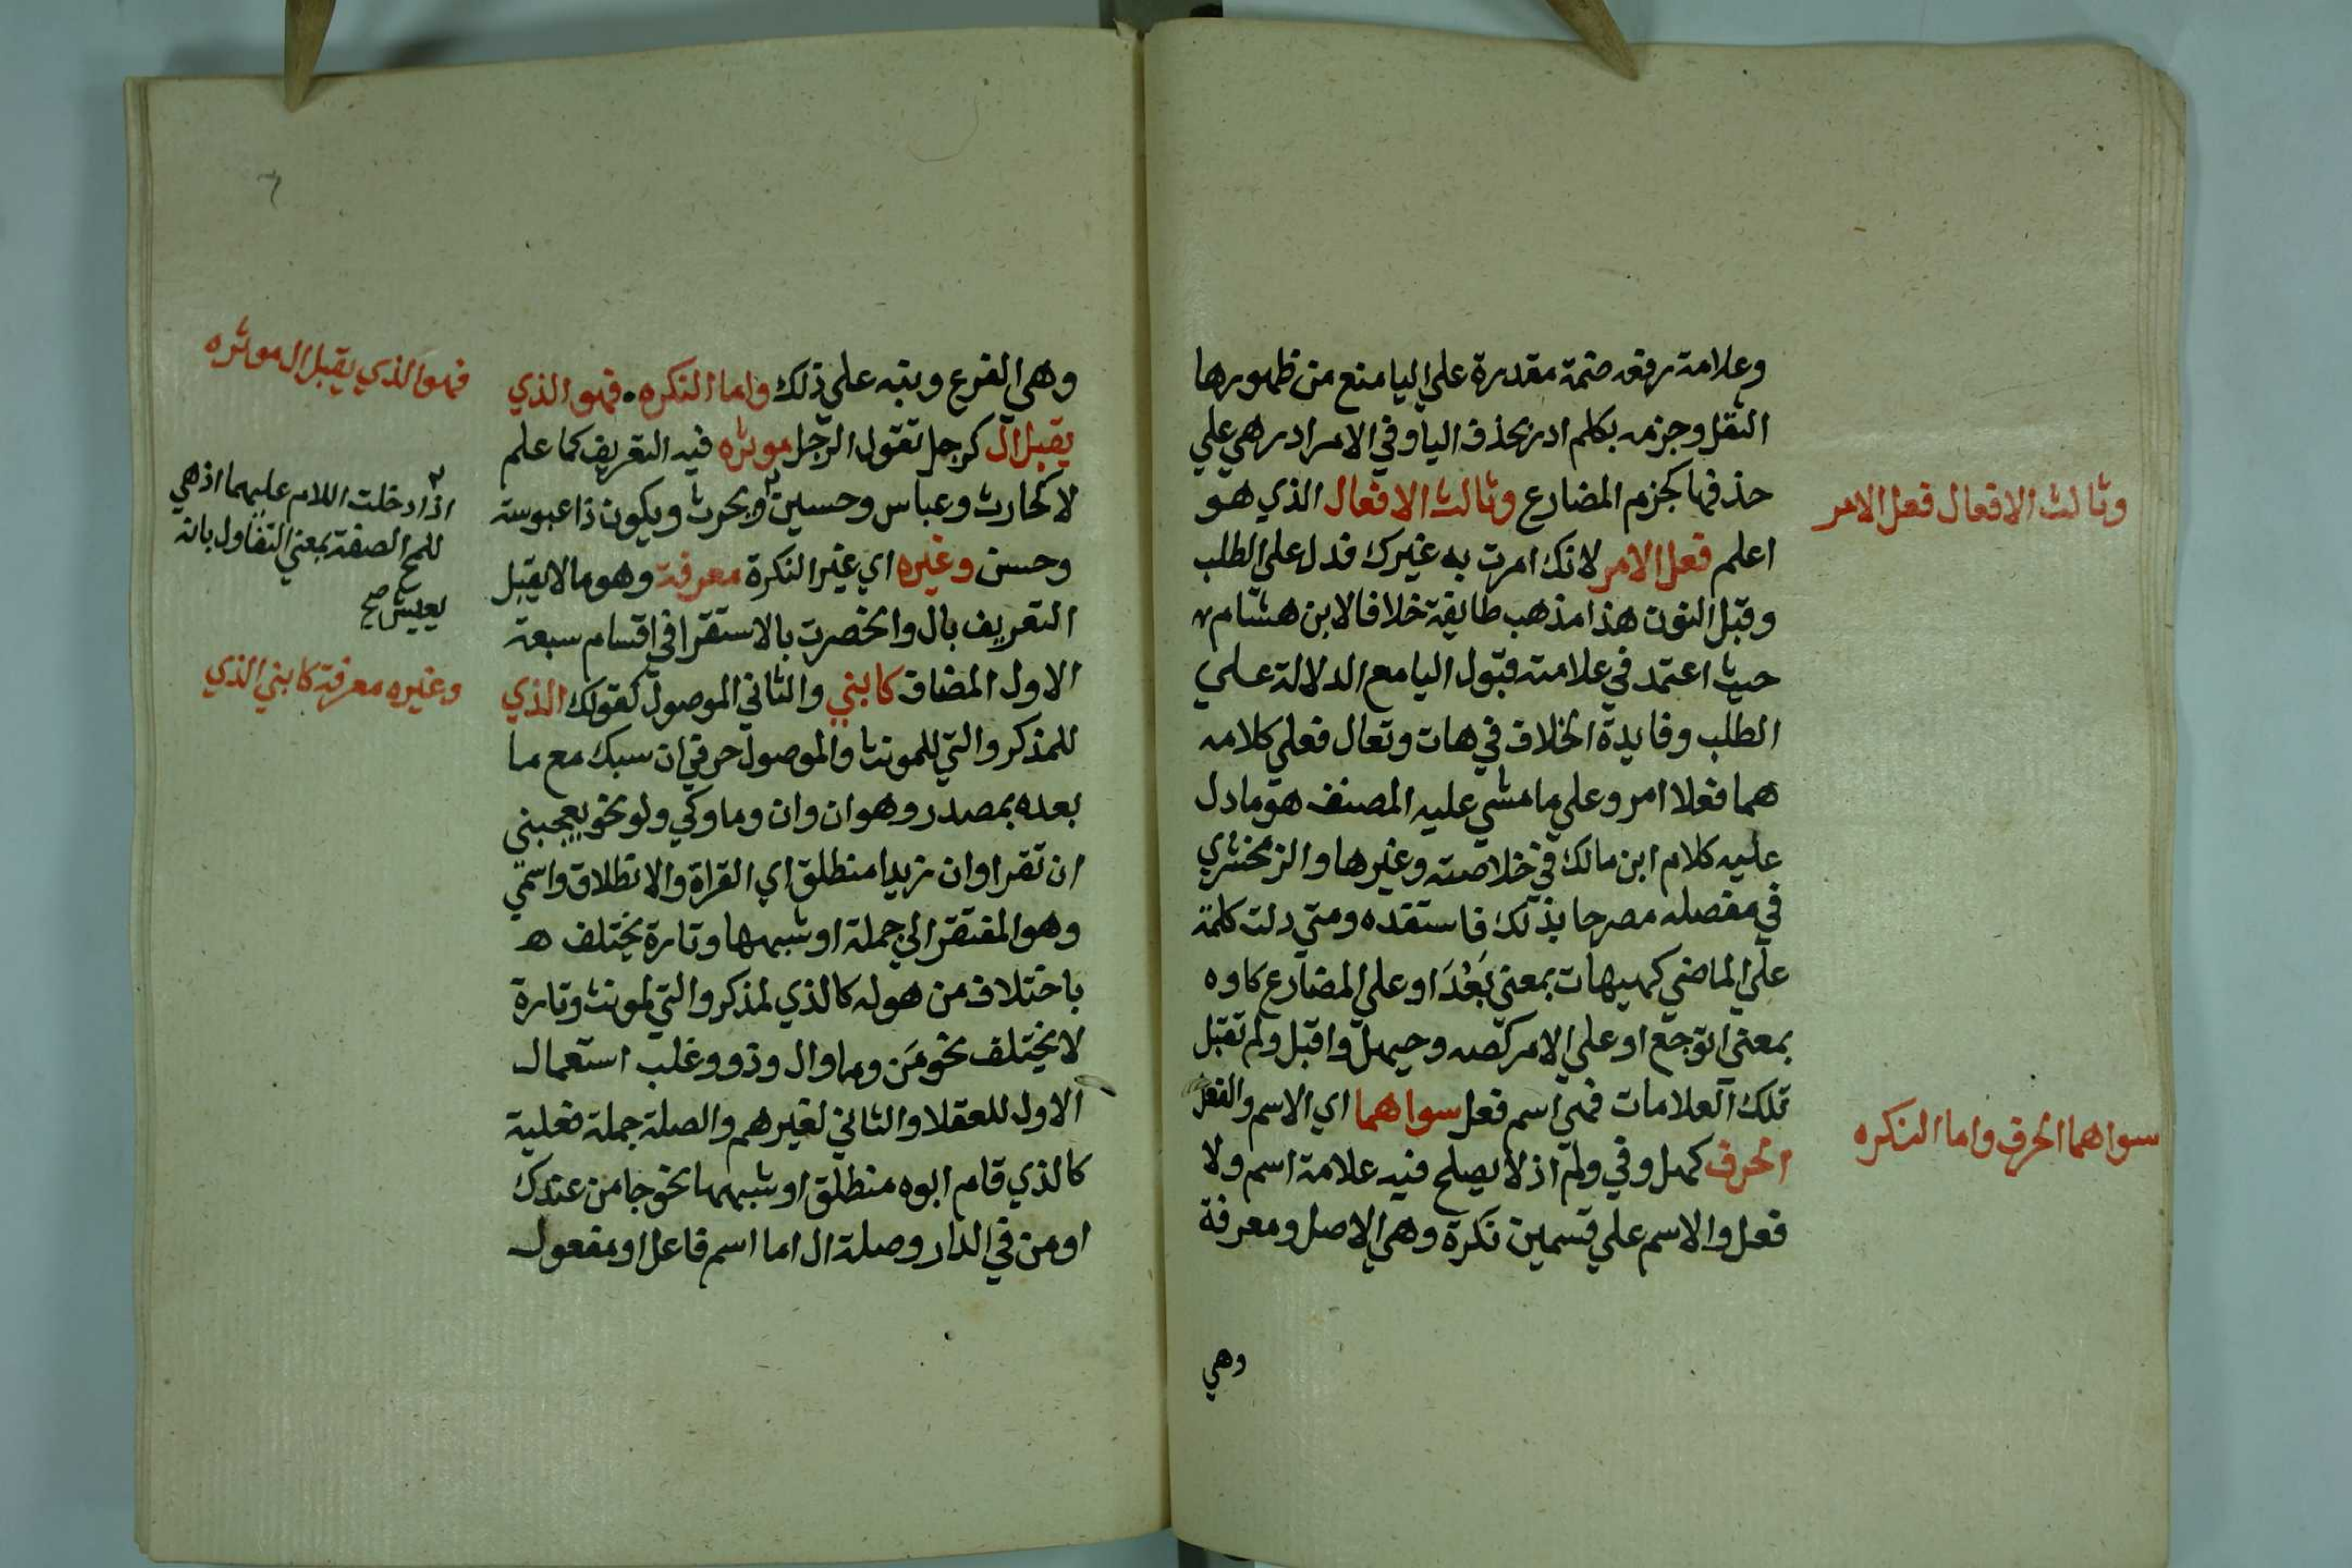 وعلامة رفعه ضمة مقدرة علي اليا منع من ظهورها
الثقل وجزمه بكلم ادر بحذف اليا وفي الامر ادر هي علي
حذفها كجزم المضارع وثالث الافعال الذي هو
اعلم فعل الامر لانك امرت به غيرك فدل علي الطلب
وقبل النون هذا مذهب طايفة خلافا لابن هشام
حيث اعتمد في علامته قبول اليا مع الدلالة علي
الطلب وفايدة الخلاف في هات وتعال فعلي كلامه
هما فعلا امر وعلي ما مشي عليه المصنف هو ما دل
عليه كلام ابن مالك في خلاصته وغيرها والزمخشري
في مفصله مصرحا بذلك فاستفده ومتي دلت كلمة
علي الماضي كهيهات بمعني بَعُدَ او علي المضارع كاوه
بمعني اتوجع او علي الامر كصه وحيهل واقبل ولم تقبل
تلك العلامات فهي اسم فعل سواهما اي الاسم والفعل
الحرف كهل وفي ولم اذ لا يصلح فيه علامة اسم ولا
فعل والاسم علي قسمين نكرة وهي الاصل ومعرفة
وهي
وثالث الافعال فعل الامر
سواهما الحرف واما النكره
٦
وهي الفرع وبنبه علي ذلك واما النكره . فهو الذي
يقبل ال كرجل تقول الرجل موثره فيه التعريف كما علم
لا كحارث وعباس وحسين ويحرث ويكون ذا عبوسة
وحسن وغيره اي غير النكرة معرفة وهو ما لا يقبل
التعريف بال وانحصرت بالاستقرا في اقسام سبعة
الاول المضاف كابني والثاني الموصول كقولك الذي
للمذكر والتي للمونث والموصول حرفي ان سبك مع ما
بعده بمصدر وهو ان وان وما وكي ولو نحو يعجبني
ان تقرا وان زيدا منطلق اي القراة والانطلاق واسمي
وهو المفتقر الي جملة او شبهها وتارة يختلف ه
باختلاف من هو له كالذي لمذكر والتي لمونث وتارة
لا يختلف نحو مَن وما وال وذو وغلب استعمال
الاول للعقلا والثاني لغيرهم والصلة جملة فعلية
كالذي قام ابوه منطلق او شبهها نحو جا من عندك
او من في الدار وصلة ال اما اسم فاعل او مفعول
فهو الذي يقبل ال موثره
اذا دخلت اللام عليهما اذ هي
للمح الصفة بمعني التفاول بانه
يعيش صح
وغيره معرفة كابني الذي